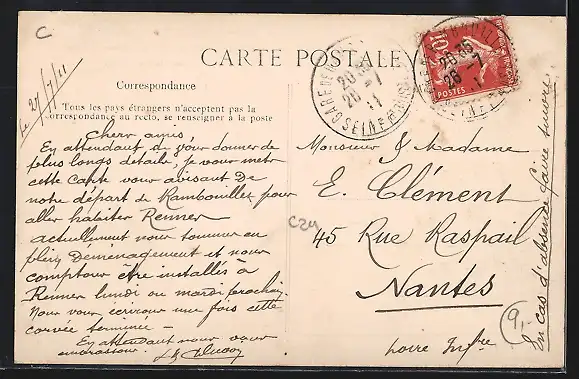 C
le 27/7/11
CARTE POSTALE
Correspondance
Tous les pays étrangers n'acceptent pas la
correspondance au recto, se renseigner à la poste
Chers amis
En attendant de vous donner de
plus longs details, je vous mets
cette carte vous avisant de
notre départ de Rambouillet pour
aller habiter Rennes
actuellement nous sommes en
plein Demenagement et nous
comptons être installés a
Rennes lundi ou mardi prochain.
Nous vous ecrirons une fois cette
corvée terminée -
En attendant nous vous
embrassons.
GARE DE
20
26 - 7
11
SEINE ET OISE
10
POSTES
Monsieur & Madame
E. Clément
45 Rue Raspail
Nantes
Loire Infre
En cas d'absence faire suivre
C24
9,-